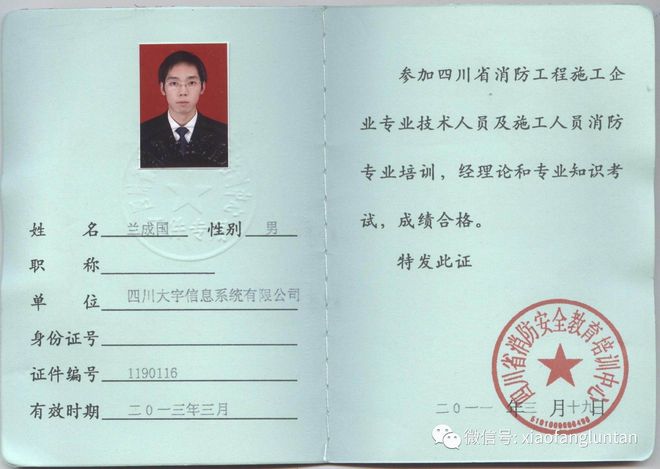 姓 名 兰成国 性别 男
职 称
单 位 四川大宇信息系统有限公司
身份证号
证件编号 1190116
有效时期 二0一三年三月
参加四川省消防工程施工企
业专业技术人员及施工人员消防
专业培训，经理论和专业知识考
试，成绩合格。
特发此证
四川省消防安全教育培训中心
二0一一 年三 月十九日
微信号: xiaofangluntan